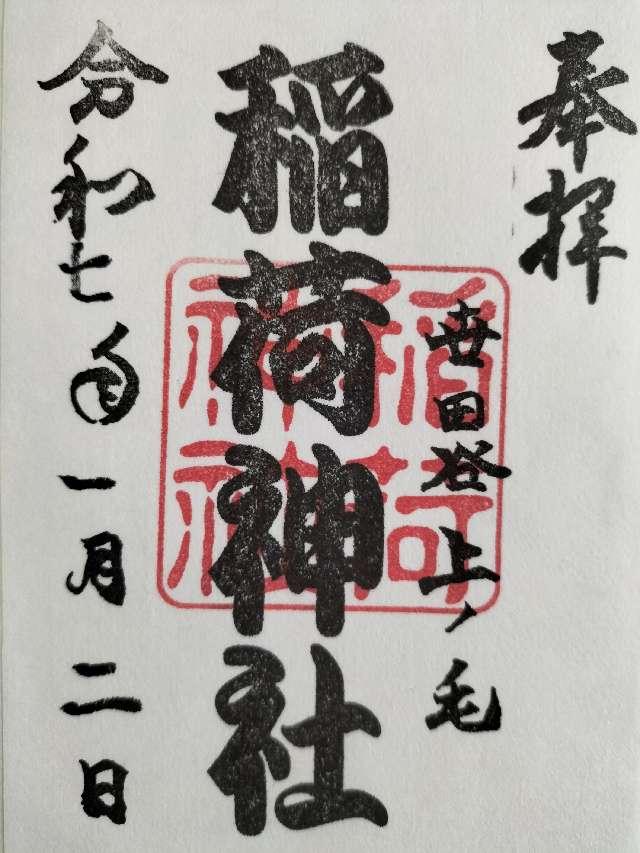 奉拝
幸田谷上ノ毛
稲荷神社
稲荷神社
令和七年一月二日